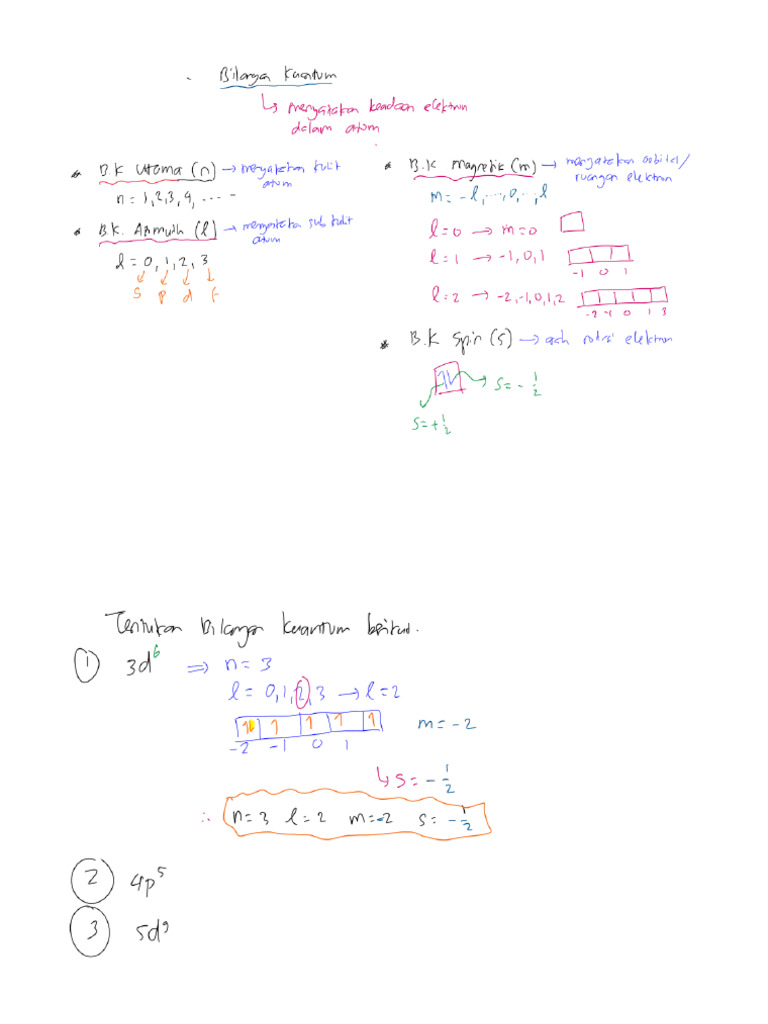 Bilangan Kuantum
↳ menyatakan keadaan elektron
dalam atom
* B.K Utama (n) → menyatakan kulit
atom
n = 1, 2, 3, 4, ....
* B.K. Azimuth (l) → menyatakan sub kulit
atom
l = 0, 1, 2, 3
s p d f
* B.K Magnetik (m) → menyatakan orbital/
ruangan elektron
m = -l, ..., 0, ..., l
l = 0 → m = 0
l = 1 → -1, 0, 1
-1 0 1
l = 2 → -2, -1, 0, 1, 2
-2 -1 0 1 3
* B.K Spin (s) → arah rotasi elektron
1L → s = - 1/2
s = + 1/2
Tentukan Bilangan Kuantum berikut.
1 3d⁶ ⇒ n = 3
l = 0, 1, 2, 3 → l = 2
1L 1 1 1 1 m = -2
-2 -1 0 1
↳ s = - 1/2
∴ n = 3 l = 2 m = -2 s = - 1/2
2 4p⁵
3 5d⁹